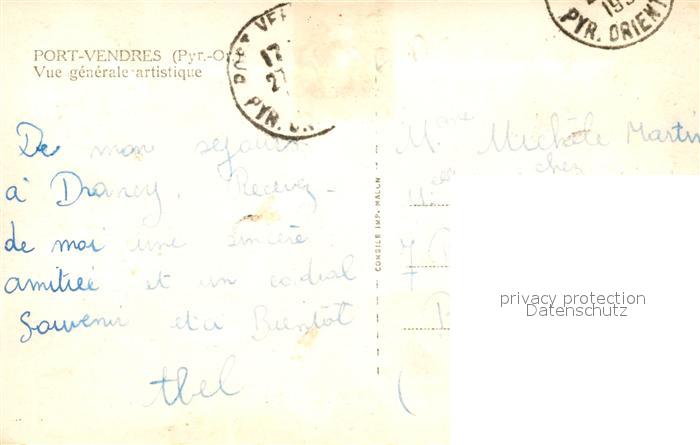 PORT-VENDRES (Pyr.-O
Vue générale artistique
PORT VE
PYR. OR
195
PYR. ORIENT
De mon sejour
à Drancy. Recevez-
de moi une sincère
amitiée et un cordial
Souvenir et à Bientôt
Abel
CONSEIL IMP. MALCN
Michèle Martin
chez
7
privacy protection
Datenschutz